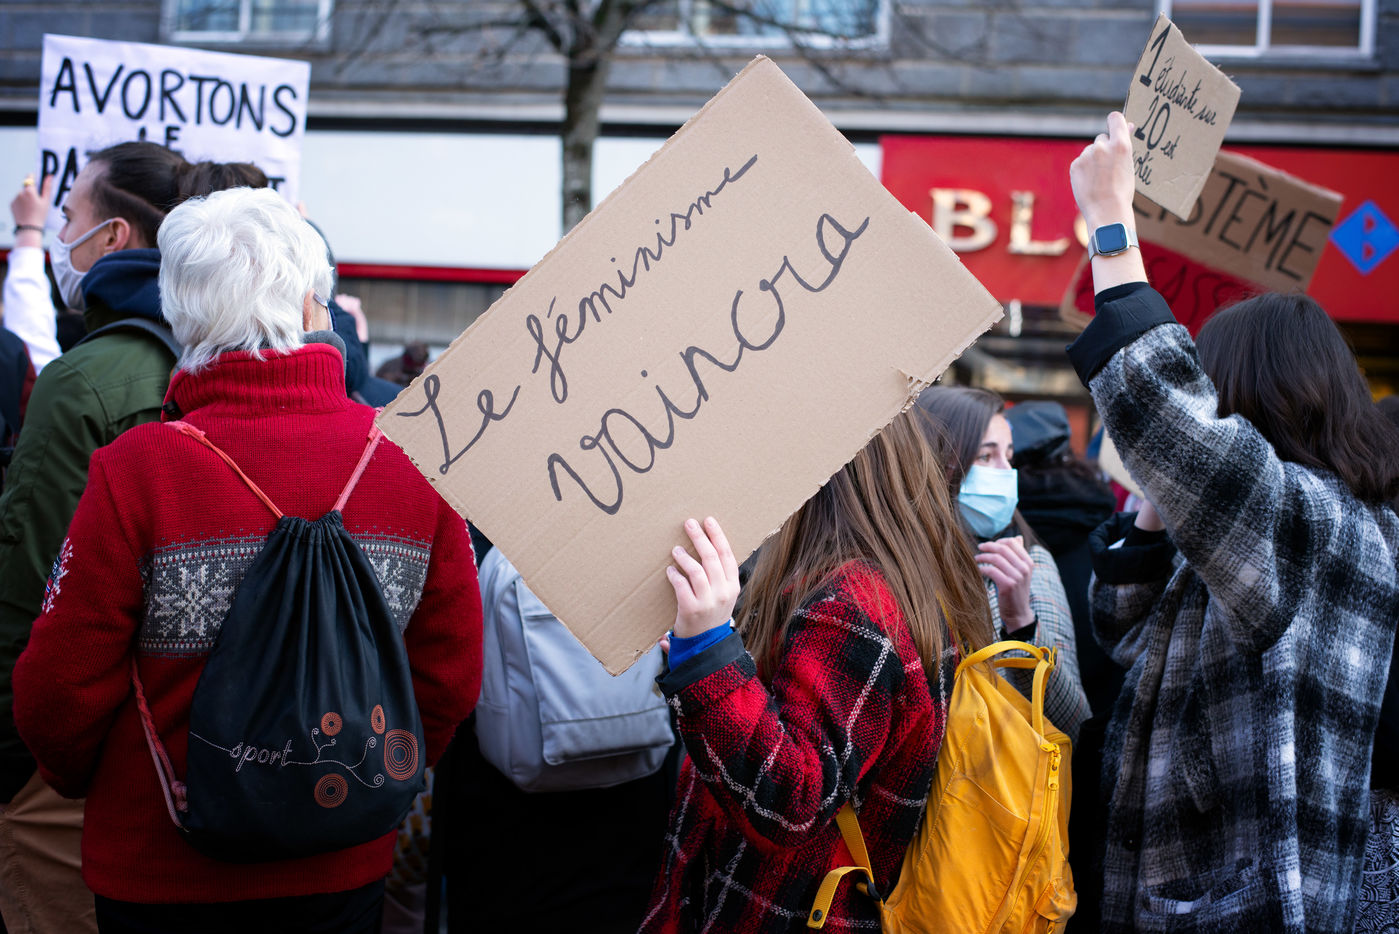 AVORTONS
LE
Le féminisme
vaincra
1 étudiante sur
10 est
BL
SYSTÈME
sport